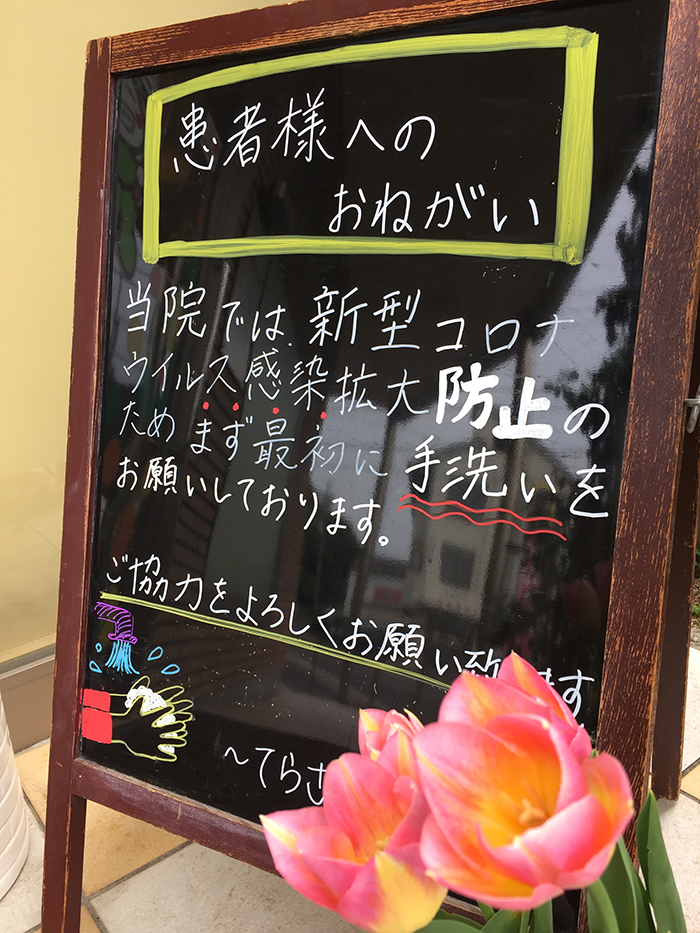 患者様への
おねがい
当院では、新型コロナ
ウイルス感染拡大防止の
ためまず最初に手洗いを
お願いしております。
ご協力をよろしくお願い致します
～てらさ